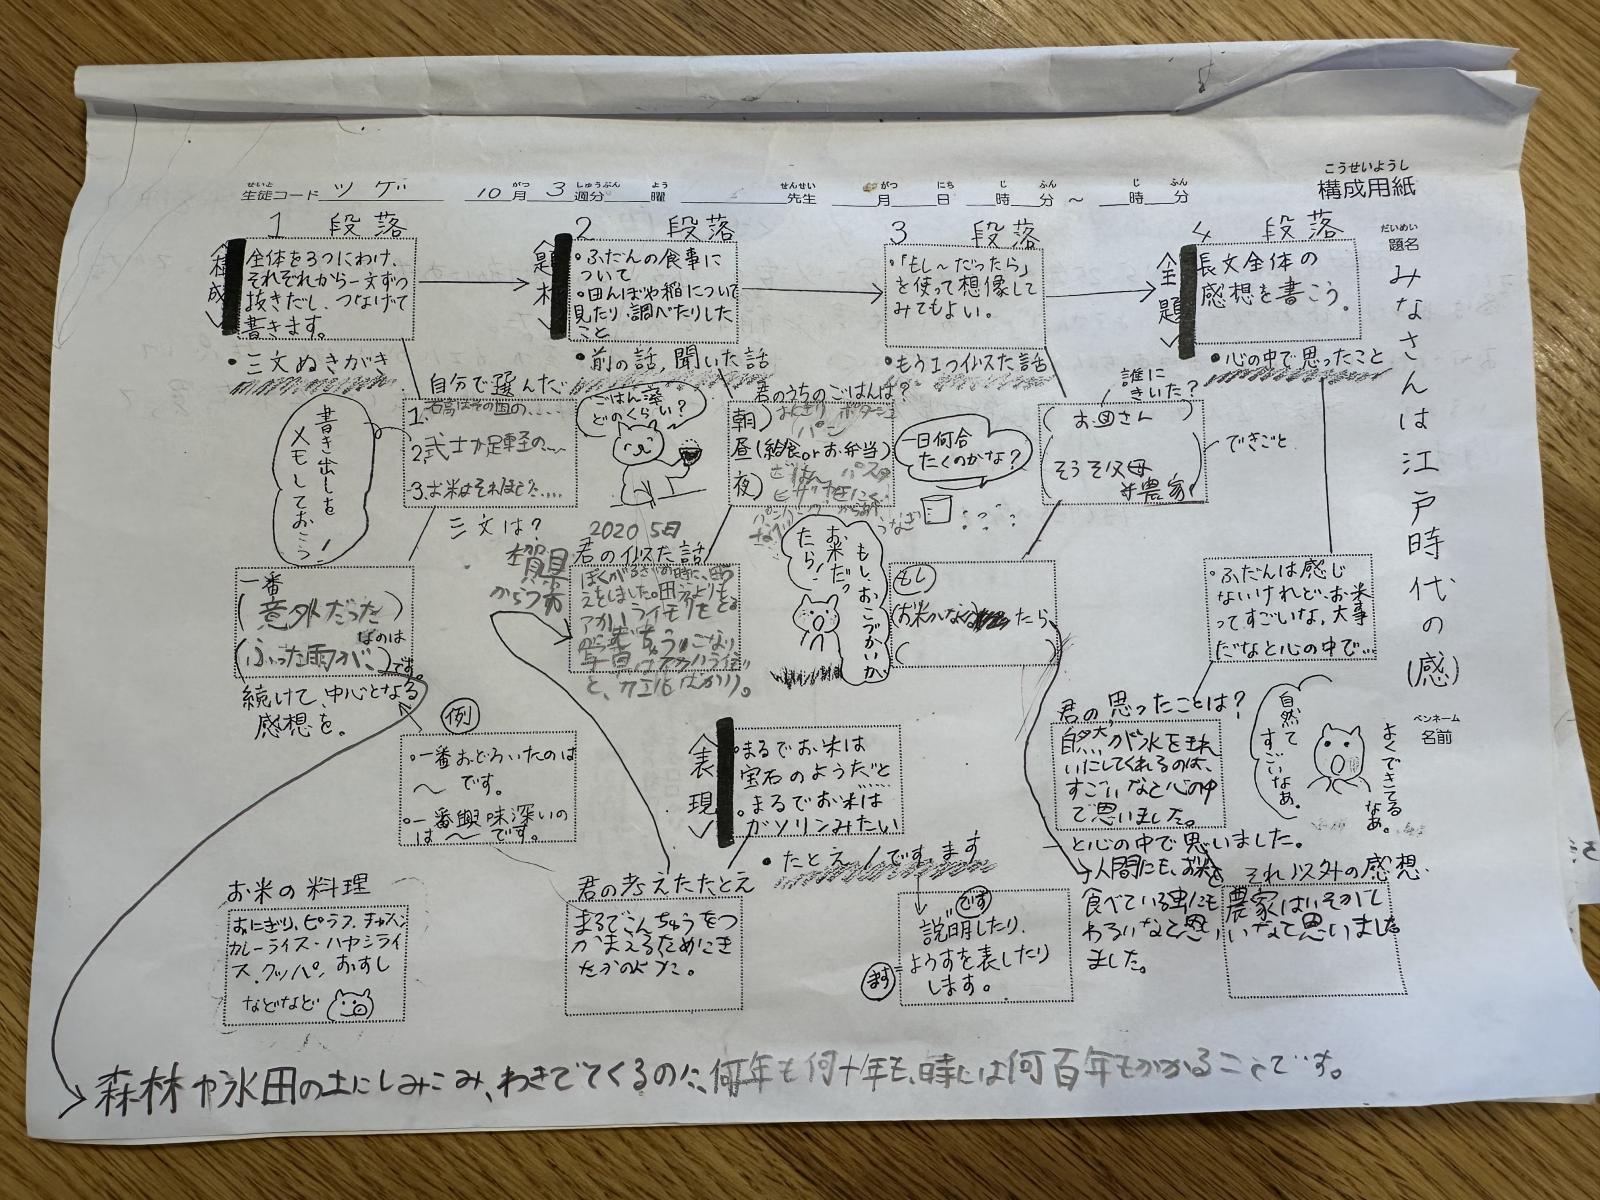 こうせいようし
構成用紙
せいと がつ しゅうぶん よう せんせい がつ にち じ ふん じ ふん
生徒コード ツゲ 10月 3週分 曜 先生 月 日 時 分 ~ 時 分
だいめい
題名
みなさんは江戸時代の(感)
ペンネーム
名前
1 段落
構成
全体を3つにわけ、
それぞれから一文ずつ
抜きだし、つなげて
書きます。
・三文ぬきがき
自分で選んだ
書き出しを
メモしておこう!
1.石高はその国の....
2.武士か足軽の
3.お米はそれほど
三文は?
一番
(意外だった)
なのは
(ふった雨が、)です。
続けて、中心となる
感想を。
例
・一番おどろいたのは
~です。
・一番興味深いの
は~です。
お米の料理
おにぎり、ピラフ、チャーハン
カレーライス・ハヤシライ
ス、クッパ、おすし
などなど
森林や水田の土にしみこみ、わきでてくるのに、何年も何十年も、時には何百年もかかることです。
2 段落
題材
・ふだんの食事に
ついて
・田んぼや稲について
見たり、調べたりした
こと
・前の話,聞いた話
ごはん澤
どのくらい?
君のうちのごはんは?
朝)おにぎり ポタージュ
パン
昼(給食orお弁当)
夜)ごはん パスタ
ピザ
うなぎ
2020 5日
君のイ以た話
から
ぼくが
えをしました。田
アカハライモリをとる
と、カエルばかり。
もし、おこづかいが
お米だっ
たら!
表現
・まるでお米は
宝石のようだと
・まるでお米は
ガソリンみたい
・たとえ/です、ます
君の考えたたとえ
まるでこんちゅうをつ
かまえるためにき
たかのようだ。
3 段落
・「もし~だったら」
を使って想像して
みてもよい。
・もう1つイ以た話
誰に
きいた?
一日何合
たくのかな?
(お母さん)
(そうそ父母
が農家)
できごと
もし
(お米がなくなったら、
です
説明したり、
ようすを表したり
します。
ます
4 段落
全題
長文全体の
感想を書こう。
・心の中で思ったこと
・ふだんは感じ
ないけれど、お米
ってすごいな。大事
だなと心の中で...
君の思ったことは?
自然が水をきれ
いにしてくれるのは、
すごいなと心の中
で思いました。
自然て
すごいなぁ。
よくできてる
なぁ。
と心の中で思いました。
人間にも、お米を
食べている虫にも
わるいなと思い
ました。
それ以外の感想
農家はいそがし
いなと思いました